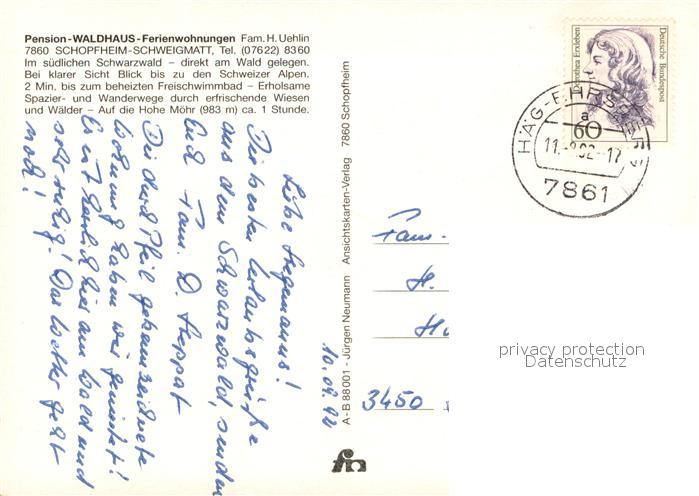 Pension-WALDHAUS-Ferienwohnungen Fam. H. Uehlin
7860 SCHOPFHEIM-SCHWEIGMATT, Tel. (07622) 8360
Im südlichen Schwarzwald – direkt am Wald gelegen.
Bei klarer Sicht Blick bis zu den Schweizer Alpen.
2 Min. bis zum beheizten Freischwimmbad – Erholsame
Spazier- und Wanderwege durch erfrischende Wiesen
und Wälder – Auf die Hohe Möhr (983 m) ca. 1 Stunde.
10.09.92
Liebe
Die besten Urlaubsgrüße
aus dem Schwarzwald, senden
Euch Fam. D. Heppat
Die durch Pfeil gekennzeichnete
Wohnung haben wir gemietet!
Es ist herrlich hier am Wald und
sehr ruhig! Das Wetter geht
noch!
A-B 88001 - Jürgen Neumann Ansichtskarten-Verlag 7860 Schopfheim
Dorothea Erxleben
Deutsche Bundespost
60
HÄG-EHRS
a
7861
Fam.
H.
3450
privacy protection
Datenschutz